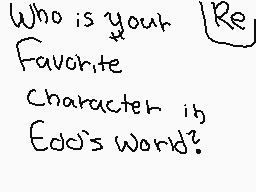 Who is your
Re
Favorite
character in
Edd's world?